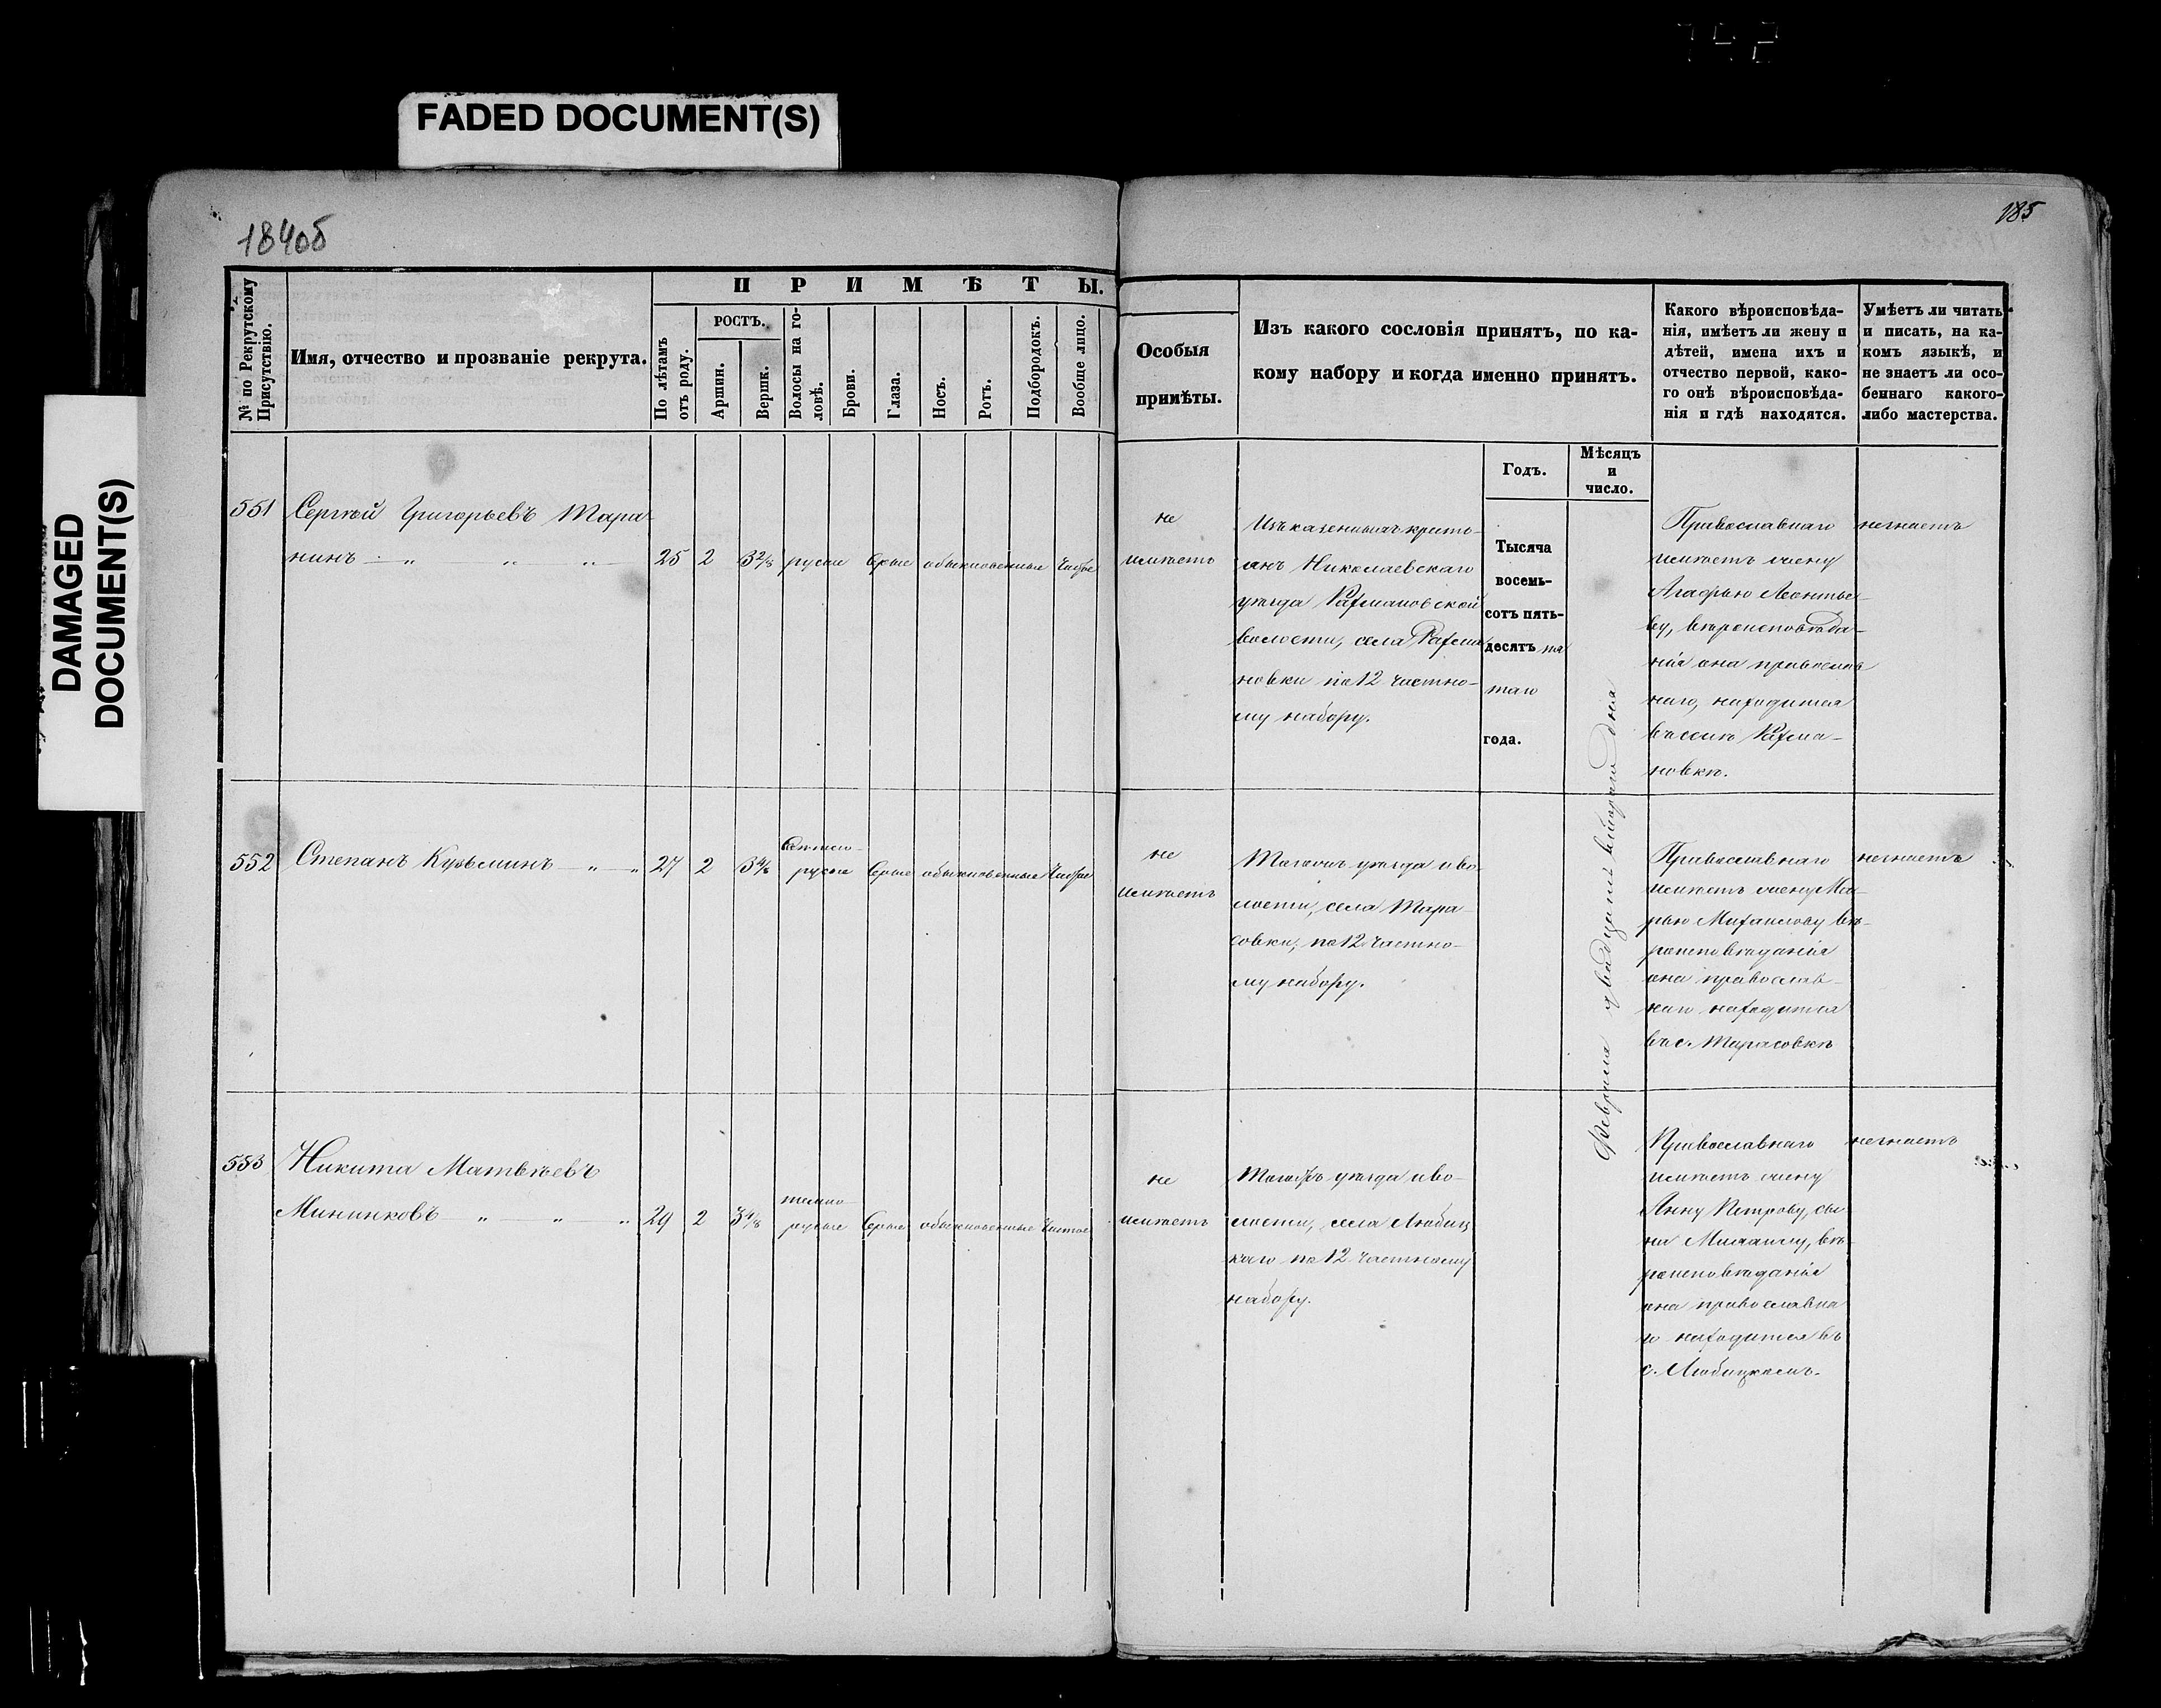 FADED DOCUMENT(S)
DAMAGED
DOCUMENT(S)
184об
185
№ по Рекрутскому
Присутствію.
Имя, отчество и прозваніе рекрута.
ПРИМѢТЫ.
По лѣтамъ
отъ роду.
РОСТЪ.
Аршин.
Вершк.
Волосы на го-
ловѣ.
Брови.
Глаза.
Носъ.
Ротъ.
Подбородокъ.
Вообще лицо.
Особыя
примѣты.
Изъ какого сословія принятъ, по ка-
кому набору и когда именно принятъ.
Годъ.
Мѣсяцъ
и
число.
Какого вѣроисповѣда-
нія, имѣетъ ли жену и
дѣтей, имена ихъ и
отчество первой, како-
го онѣ вѣроисповѣда-
нія и гдѣ находятся.
Умѣетъ ли читать
и писать, на ка-
комъ языкѣ, и
не знаетъ ли осо-
беннаго какого-
либо мастерства.
551 Сергѣй Григорьевъ Тара-
нинъ — „ „ „ 25 2 3 2/8 русые Серые обыкновенные Чистое
не
имѣетъ
Изъ казенныхъ кресть-
янъ Николаевскаго
уѣзда Рахмановской
волости, села Рахма
новки по 12 частно-
му набору.
Тысяча
восемь-
сотъ пять-
десятъ пя
таго
года.
Февраля двадцать втораго дня
Православнаго
имѣетъ жену
Агафью Леонтье-
ву, вѣроисповѣда-
нія она православ
наго, находится
въ селѣ Рахма-
новкѣ.
незнаетъ
552 Степанъ Кузьминъ — „ — „ 27 2 3 4/8
свѣтло-
русые Серые обыкновенные Чистое
не
имѣетъ
Тогожъ уѣзда и во-
лости, села Тара-
совки, по 12 частно-
му набору.
Православнаго
имѣетъ жену Ма-
рью Михаилову вѣ-
роисповѣданія
она православ-
наго находится
въ с. Тарасовкѣ
незнаетъ
553 Никита Матвѣевъ
Мининковъ „ — „ — „ 29 2 3 4/8
темно-
русые Серые обыкновенные Чистое
не
имѣетъ
Тогожъ уѣзда и во-
лости, села Любиц
каго по 12 частному
набору.
Православнаго
имѣетъ жену
Анну Петрову, сы
на Михаилу, вѣ-
роисповѣданія
она православна
го находится въ
с. Любицкомъ.
незнаетъ